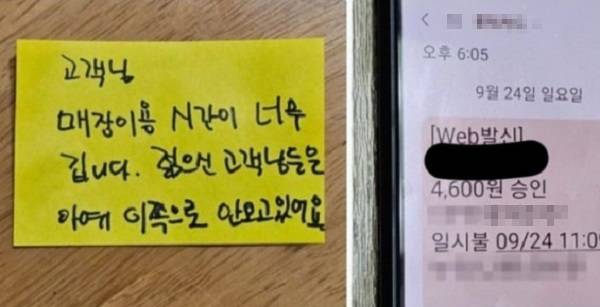 고객님
매장이용 시간이 너무
깁니다. 젊으신 고객님들은
아예 이쪽으로 안오고있어요
오후 6:05
9월 24일 일요일
[Web발신]
4,600원 승인
일시불 09/24 11:09